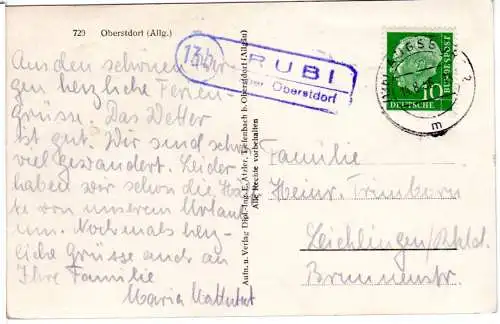 729 Oberstdorf (Allg.)
Aus den schönen Ber-
gen herzliche Ferien-
Grüsse. Das Wetter
ist gut. Wir sind schon
viel gewandert. Leider
haben wir schon die Hälf-
te von unserem Urlaub
um. Nochmals herz-
liche Grüsse auch an
Ihre Familie
Maria
Aufn. u. Verlag Dipl.-Ing. E. Atzler, Tiefenbach b. Oberstdorf (Allgäu)
Alle Rechte vorbehalten
13b
RUBI
über Oberstdorf
10
DEUTSCHE
Familie
Heinr. Trimborn
Leichlingen/Rhld.
Brunnenstr.